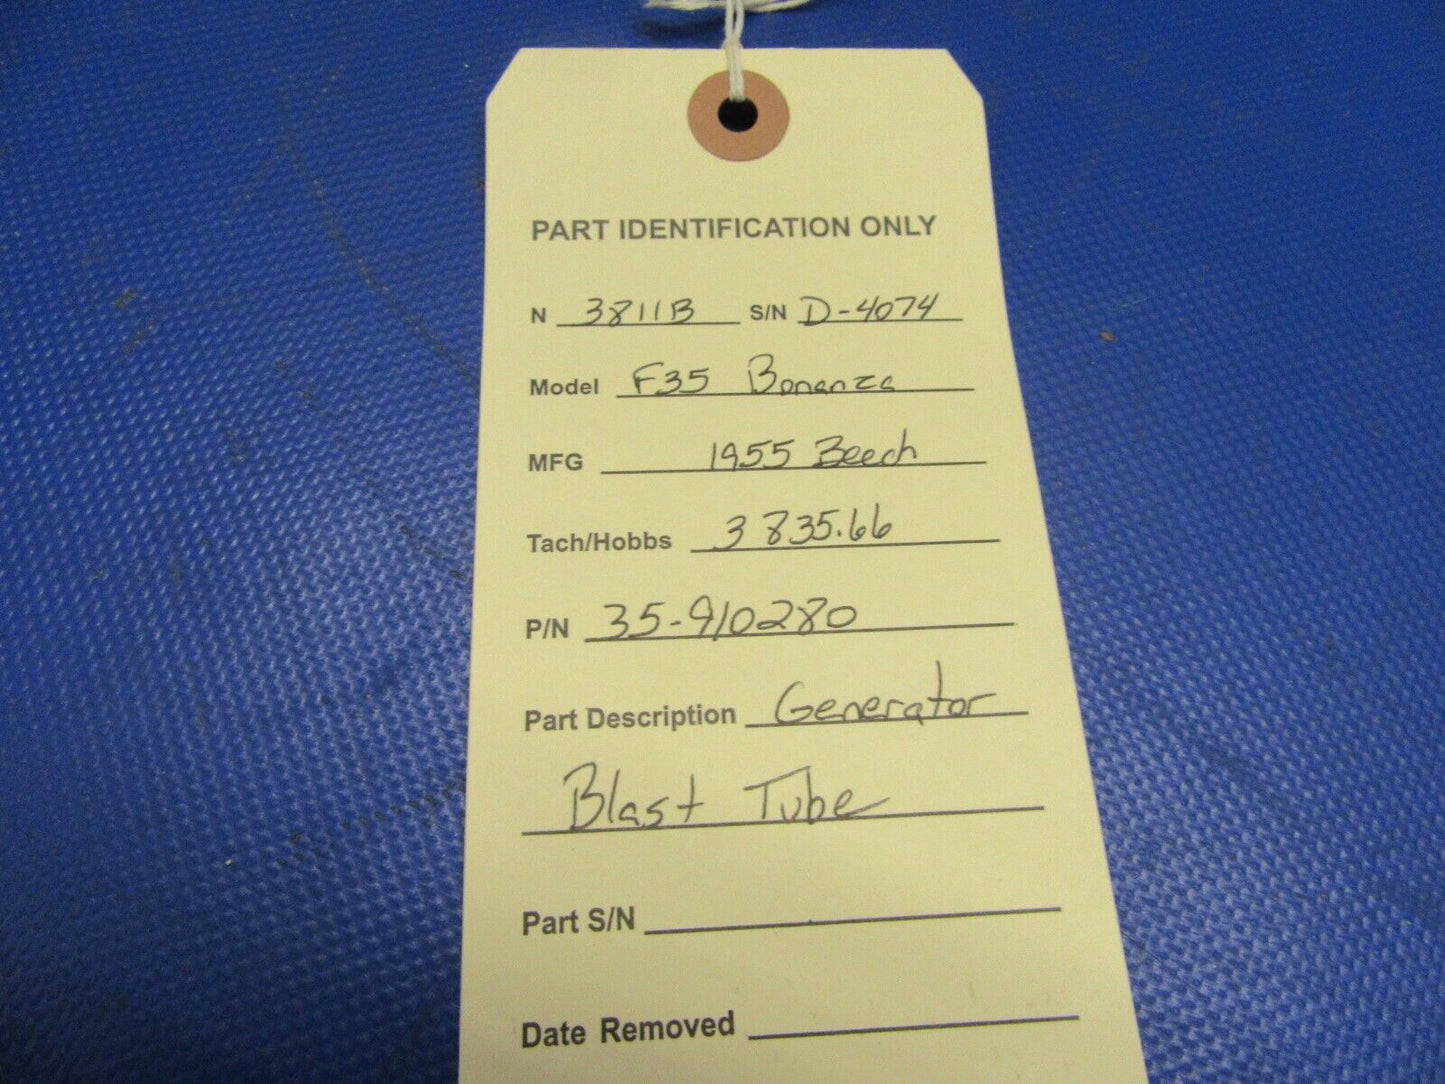 PART IDENTIFICATION ONLY
N 3811B S/N D-4074
Model F35 Bonanza
MFG 1955 Beech
Tach/Hobbs 3835.66
P/N 35-910280
Part Description Generator
Blast Tube
Part S/N
Date Removed